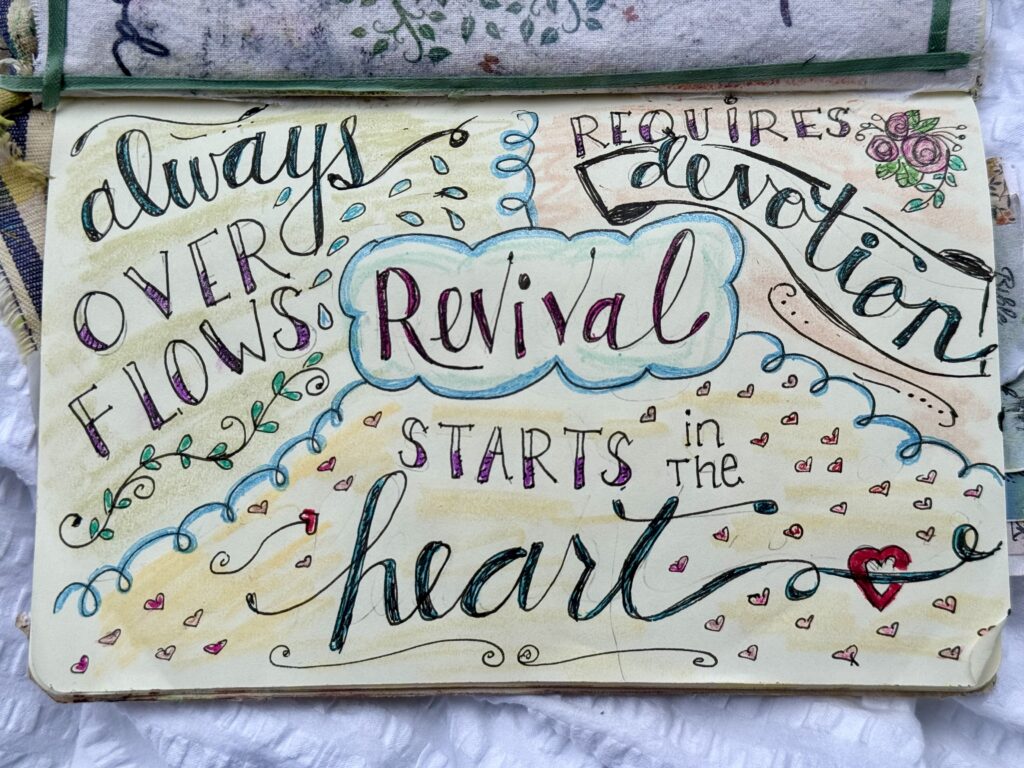 always
OVER
FLOWS
REQUIRES
devotion
Revival
STARTS in
THE
heart